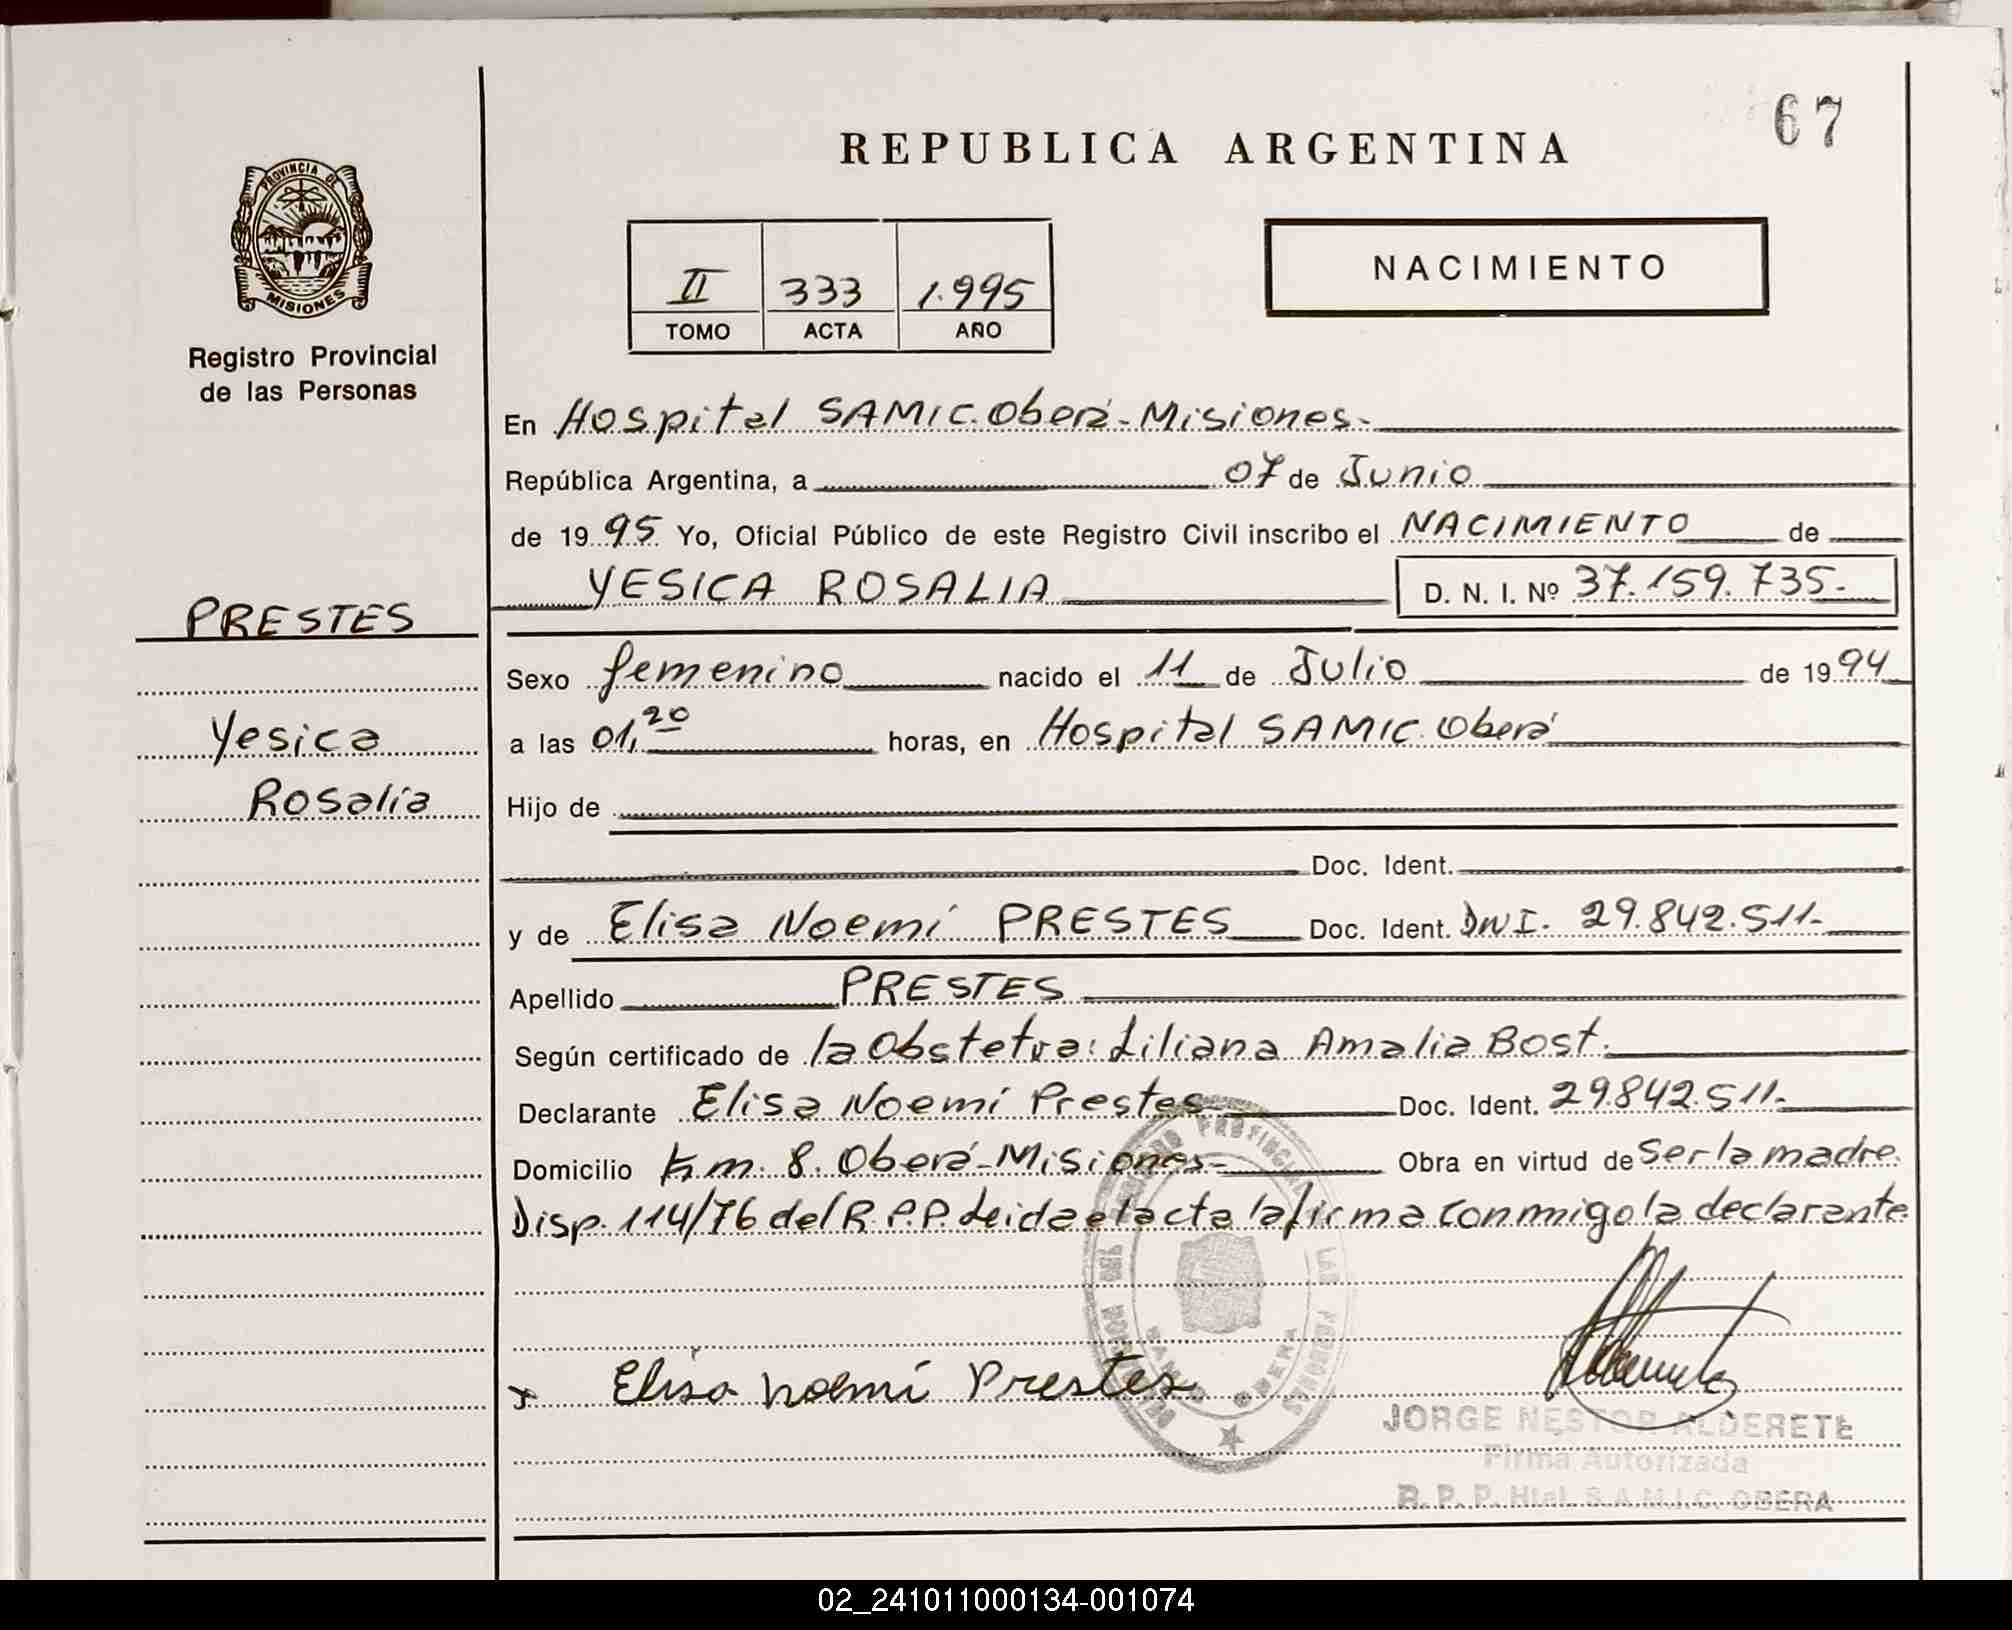 67
REPUBLICA ARGENTINA
PROVINCIA DE
MISIONES
Registro Provincial
de las Personas
II 333 1.995
TOMO ACTA AÑO
NACIMIENTO
En Hospital SAMIC. Oberá - Misiones.-
República Argentina, a 07 de Junio
de 1995 Yo, Oficial Público de este Registro Civil inscribo el NACIMIENTO de
YESICA ROSALIA D. N. I. Nº 37.159.735.-
PRESTES
Yesica
Rosalia
Sexo femenino nacido el 11 de Julio de 1994
a las 01,20 horas, en Hospital SAMIC. Oberá
Hijo de
Doc. Ident.
y de Elisa Noemí PRESTES Doc. Ident. DNI. 29.842.511.-
Apellido PRESTES
Según certificado de la Obstetra: Liliana Amalia Bost.
Declarante Elisa Noemí Prestes Doc. Ident. 29.842.511.-
Domicilio Km. 8. Oberá - Misiones - Obra en virtud de ser la madre.
Disp. 114/76 del R.P.P. Leida el acta la firma conmigo la declarante
Elisa Noemí Prestes
JORGE NESTOR ALDERETE
Firma Autorizada
R. P. P. Htal. S.A.M.I.C. OBERA
02_241011000134-001074